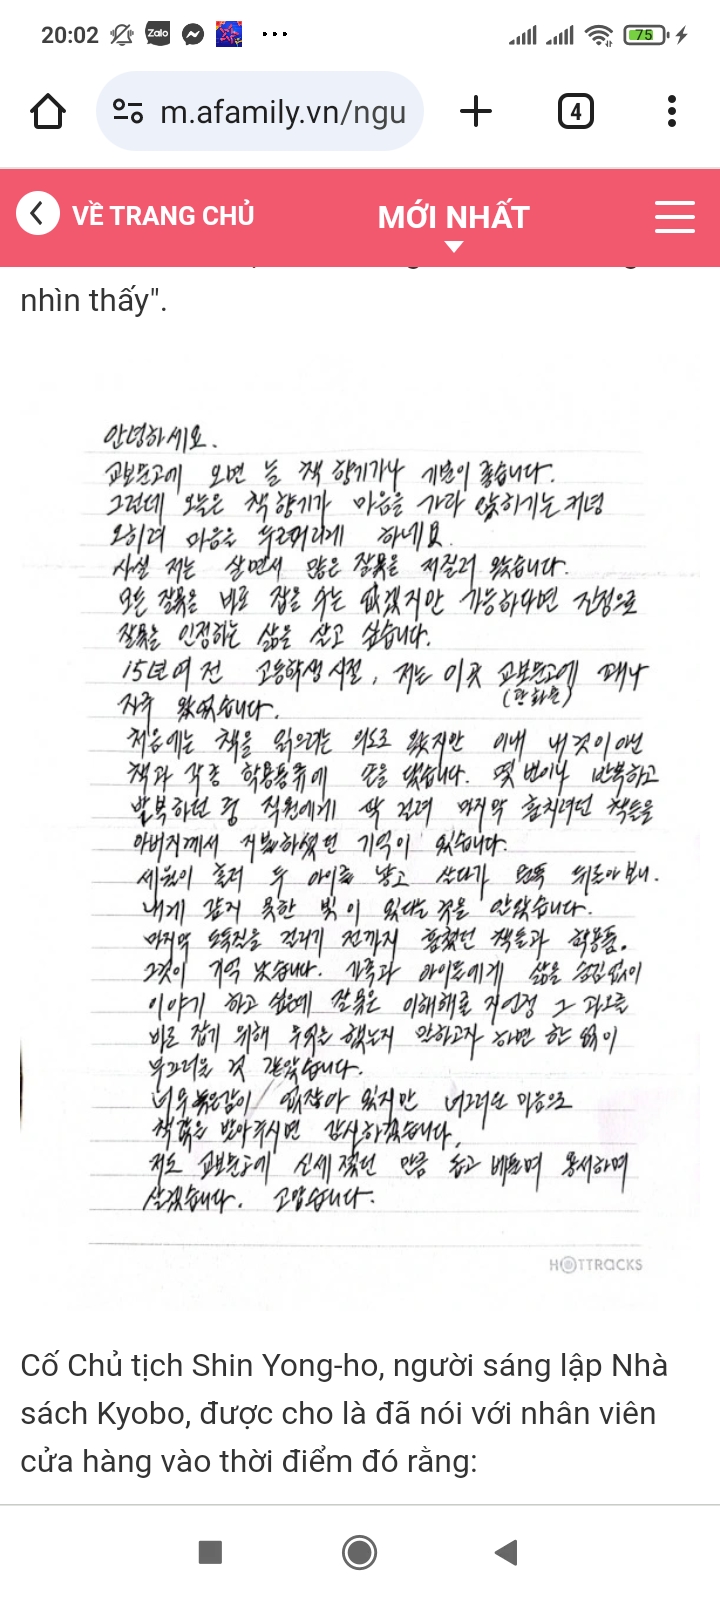 20:02
Zalo
75
m.afamily.vn/ngu
4
VỀ TRANG CHỦ
MỚI NHẤT
nhìn thấy".
안녕하세요.
교보문고에 오면 늘 책 향기가나 기분이 좋습니다.
그런데 오늘은 책 향기가 마음을 가라 앉히기는 커녕
오히려 마음을 무르게 하네요.
사실 저는 살면서 많은 잘못을 저질러 왔습니다.
모든 잘못을 바로 잡을 수는 없겠지만 가능하다면 진정으로
잘못을 인정하는 삶을 살고 싶습니다.
15년 여 전 고등학생 시절, 저는 이곳 교보문고에 꽤나
(광화문)
자주 왔었습니다.
처음에는 책을 읽으려는 의도로 왔지만 이내 내 것이 아닌
책과 각종 학용품류에 손을 댔습니다. 몇 번이나 반복하고
반복하던 중 직원에게 딱 걸려 마지막 훔치려던 책들을
아버지께서 지불하셨던 기억이 있습니다.
세월이 흘러 두 아이를 낳고 살다가 문득 뒤돌아 보니.
내게 갚지 못한 빚이 있다는 것을 알았습니다.
마지막 도둑질을 걸리기 전까지 훔쳤던 책들과 학용품.
그것이 기억 났습니다. 가족과 아이들에게 삶을 숨김없이
이야기 하고 싶은데 잘못은 이해해줄 지언정 그 과오를
바로 잡기 위해 무엇을 했는지 말하고자 하면 한 없이
부끄러울 것 같았습니다.
너무 늦은감이 없잖아 있지만 너그러운 마음으로
책값을 받아주시면 감사하겠습니다.
저도 교보문고에 신세 졌던 만큼 돕고 베풀며 용서하며
살겠습니다. 고맙습니다.
HOTTRACKS
Cố Chủ tịch Shin Yong-ho, người sáng lập Nhà
sách Kyobo, được cho là đã nói với nhân viên
cửa hàng vào thời điểm đó rằng: